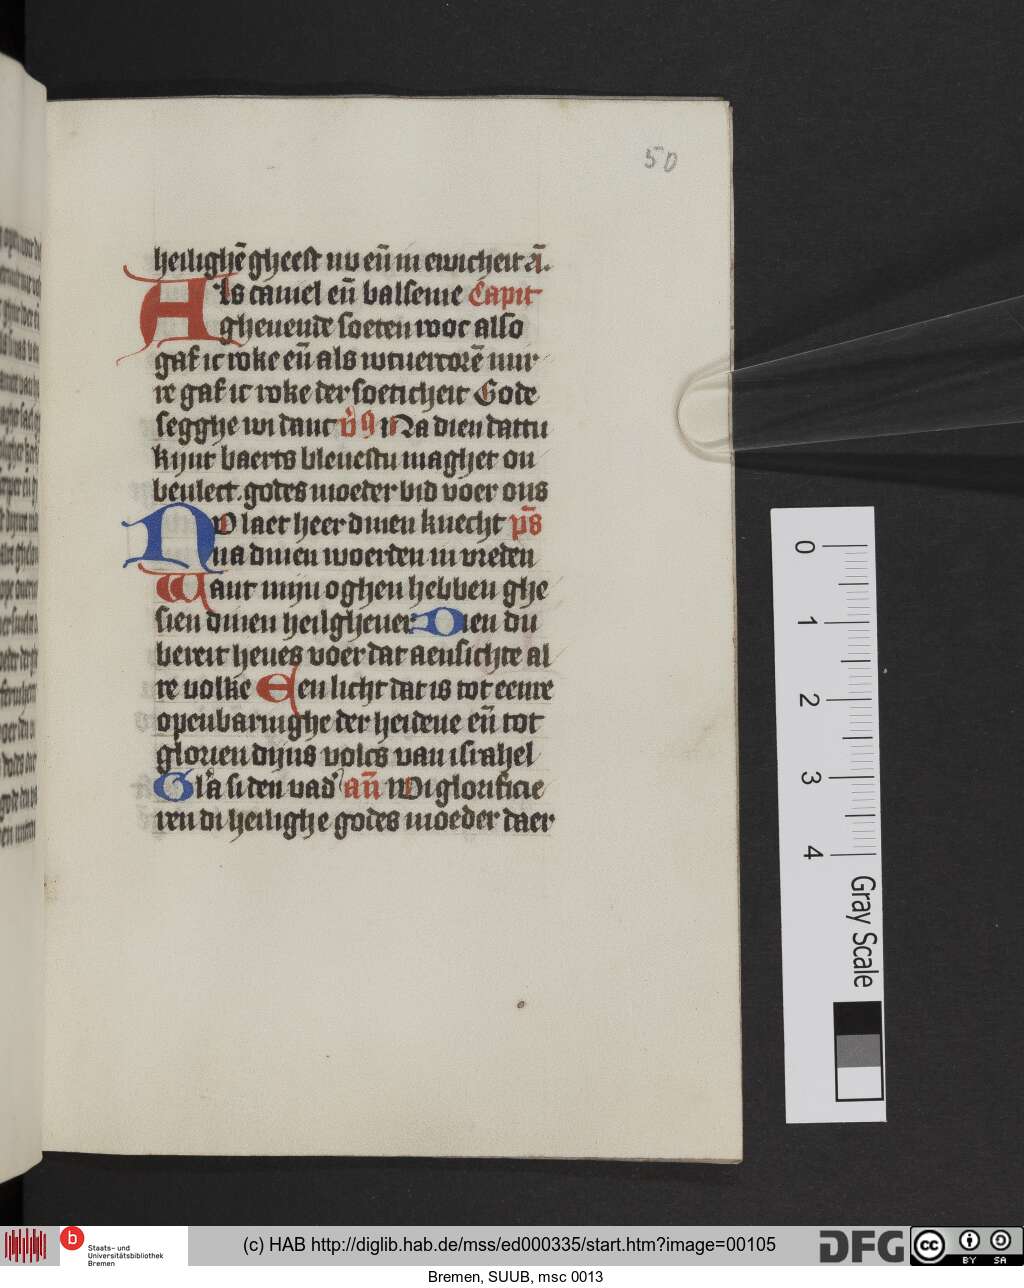 50
heilighē gheest nv eñ in ewicheit ā.
Als caneel eñ balseme Capit
gheuende soeten roc also
gaf ic roke eñ als wtuercorē mir
re gaf ic roke der soeticheit Gode
segghe wi danc v̓s Na dien dattu
kijnt baerts bleuestu maghet on
beulect. godes moeder bid voer ons
Nv laet heer dinen knecht ps̄
na dinen woerden in vreden
Want mijn oghen hebben ghe
sien dinen heilgheuer Dien du
bereit heues voer dat aensichte al
re volke Een licht dat is tot eenre
openbaringhe der heidene eñ tot
glorien dijns volcs van israhel
Gl'a si den vad' añ Wi glorificie
ren di heilighe godes moeder daer
0
1
2
3
4
Gray Scale
b Staats- und
Universitätsbibliothek
Bremen
(c) HAB http://diglib.hab.de/mss/ed000335/start.htm?image=00105
DFG
cc BY SA
Bremen, SUUB, msc 0013